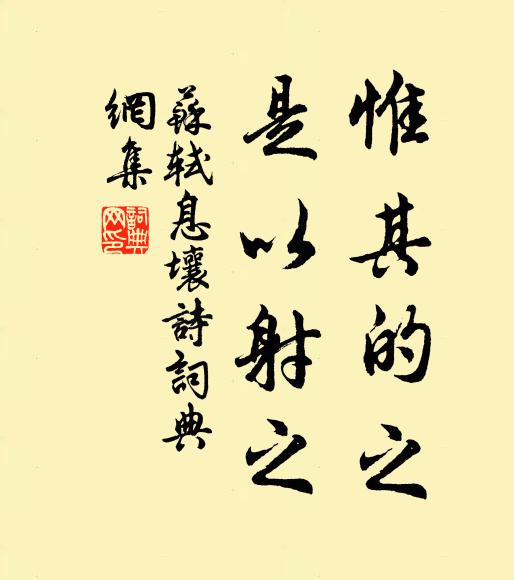 惟其的之
是以射之
蘇軾息壤詩詞典
網集
詞典網印